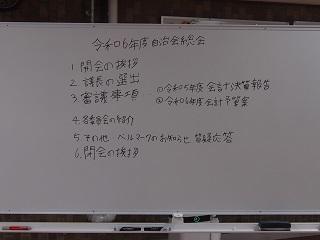 令和6年度自治会総会
1. 開会の挨拶
2. 議長の選出
3. 審議事項 ①令和5年度会計決算報告
②令和6年度会計予算案
4. 各委員会の紹介
5. その他 ベルマークのお知らせ 質疑応答
6. 閉会の挨拶